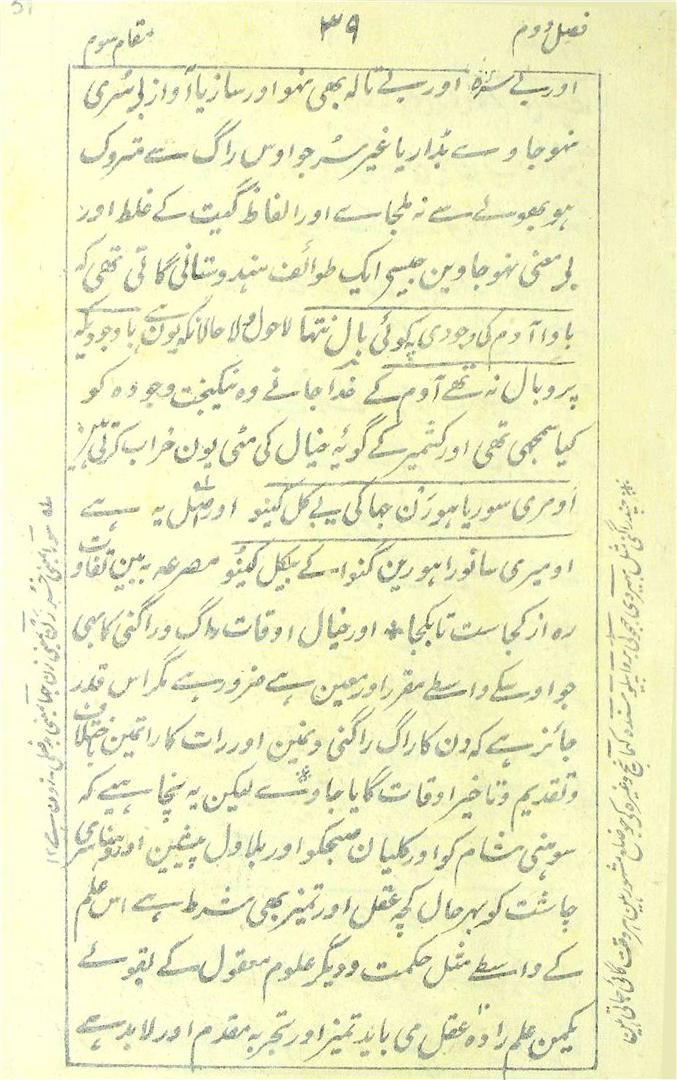 فصل دوم
۳۹
مقام سوم
اور بے سرہ اور بے تالہ بھی نہو اور ساز یا آواز بی سُری
نہو جاوے بڈار یا غیر سُر جو اوس راگ سے متروک
ہو بھولے سے نہ ملجاے اور الفاظ گیت کے غلط اور
بی معنی نہو جاوین جیسی ایک طوائف ہندوستانی گاتی تھی کہ
باوا آدم کی وجودی پہ کوئی بال نتہا لاحول ولا حالانکہ یون ہے باوجودیکہ
پر و بال نہ تھے آدم کے خدا جانے وہ نیکبخت وجودہ کو
کیا سمجھی تھی اور کشمیر کے گویہ خیال کی مٹی یون خراب کرتی ہین
اومری سوریا ہورَن جہا کی بے کل کینو اور اصل یہ ہے
او میری سانورا ہو رین گنوا کے بیکل کینو مصرعہ بہ بین تفاوت
رہ از کجاست تا بکجا * اور خیال اوقات راگ و راگنی کا بہی
جو اوسکے واسطے مقرر اور معین ہے ضرور ہے مگر اس قدر
جائز ہے کہ دن کا راگ راگنی دنمین اور رات کا راتمین باختلاف
و تقدیم و تاخیر اوقات گایا جاوے لیکن یہ نچاہیے کہ
سوہنی شام کو اور کلیان صبحکو اور بلاول پیشین اور دھناسری
چاشت کو بہر حال کچہ عقل اور تمیز بھی شرط ہے اس علم
کے واسطے مثل حکمت و دیگر علوم معقول کے بقولے
یکمن علم را دہ من عقل می باید تمیز اور تجربہ مقدم اور لابد ہے